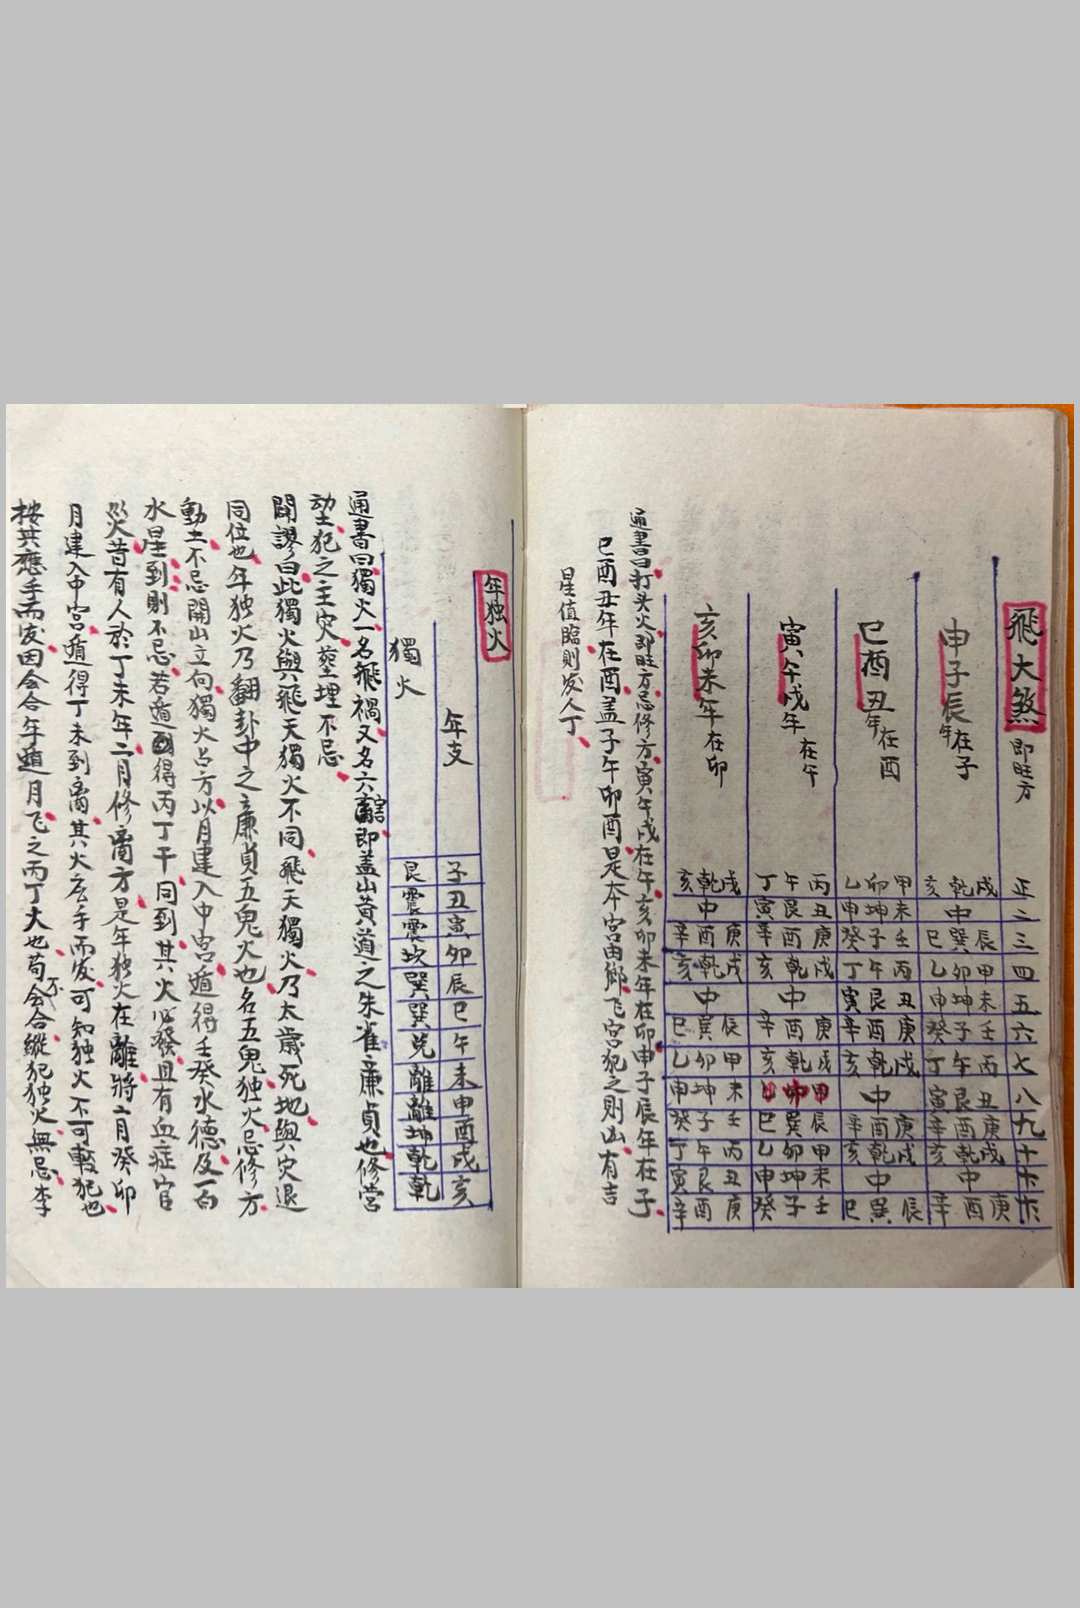 飛大煞 即旺方
正 二 三 四 五 六 七 八 九 十 十一 十二
申子辰年在子
戌乾亥 中 辰巽巳 甲卯乙 未坤申 壬子癸 丙午丁 丑艮寅 庚酉辛 戌乾亥 中 庚酉辛
巳酉丑年在酉
甲卯乙 未坤申 壬子癸 丙午丁 丑艮寅 庚酉辛 戌乾亥 中 庚酉辛 戌乾亥 中 辰巽巳
寅午戌年在午
丙午丁 丑艮寅 庚酉辛 戌乾亥 中 庚酉辛 戌乾亥 辰巽巳 甲卯乙 未坤申 壬子癸
亥卯未年在卯
戌乾亥 中 庚酉辛 戌乾亥 中 辰寅巳 甲卯乙 未坤申 壬子癸 丙午丁 丑艮寅 庚酉辛
通書曰打头火即旺方忌修方寅午戌在午亥卯未年在卯申子辰年在子
巳酉丑年在酉盖子午卯酉是本宫由鄉飞宫犯之則凶有吉
星值臨則发人丁
年独火
年支 子丑寅卯辰巳午未申酉戌亥
獨火 艮震震坎巽巽兑離離坤乾乾
通書曰獨火一名飛禍又名六害即盖山黄道之朱雀廉貞也修营
动土犯之主灾葬埋不忌
闢謬曰此獨火與飛天獨火不同飛天獨火乃太歲死地與灾退
同位也年独火乃翻卦中之廉貞五鬼火也名五鬼独火忌修方
動土不忌開山立向獨火占方以月建入中宫遁得壬癸水德及一白
水星到則不忌若遁得丙丁干同到其火必發且有血症官
災昔有人於丁未年二月修离方是年独火在離將二月癸卯
月建入中宫遁得丁未到离其火应手而发可知独火不可輕犯也
按其應手而发因会合年遁月飞之丙丁大也苟不会合縱犯独火無忌李